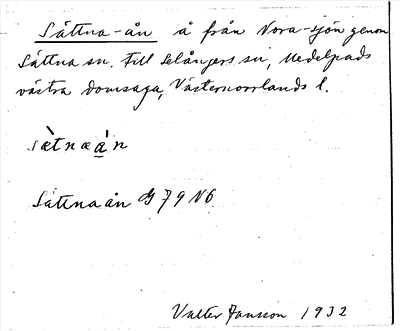 Sättna-ån å från Nora-sjön genom
Sättna sn. till Selångers sn, Medelpads
västra domsaga, Västernorrlands l.
sæ̀tnaån
Sättnaån G 79 N6
Valter Jansson 1932